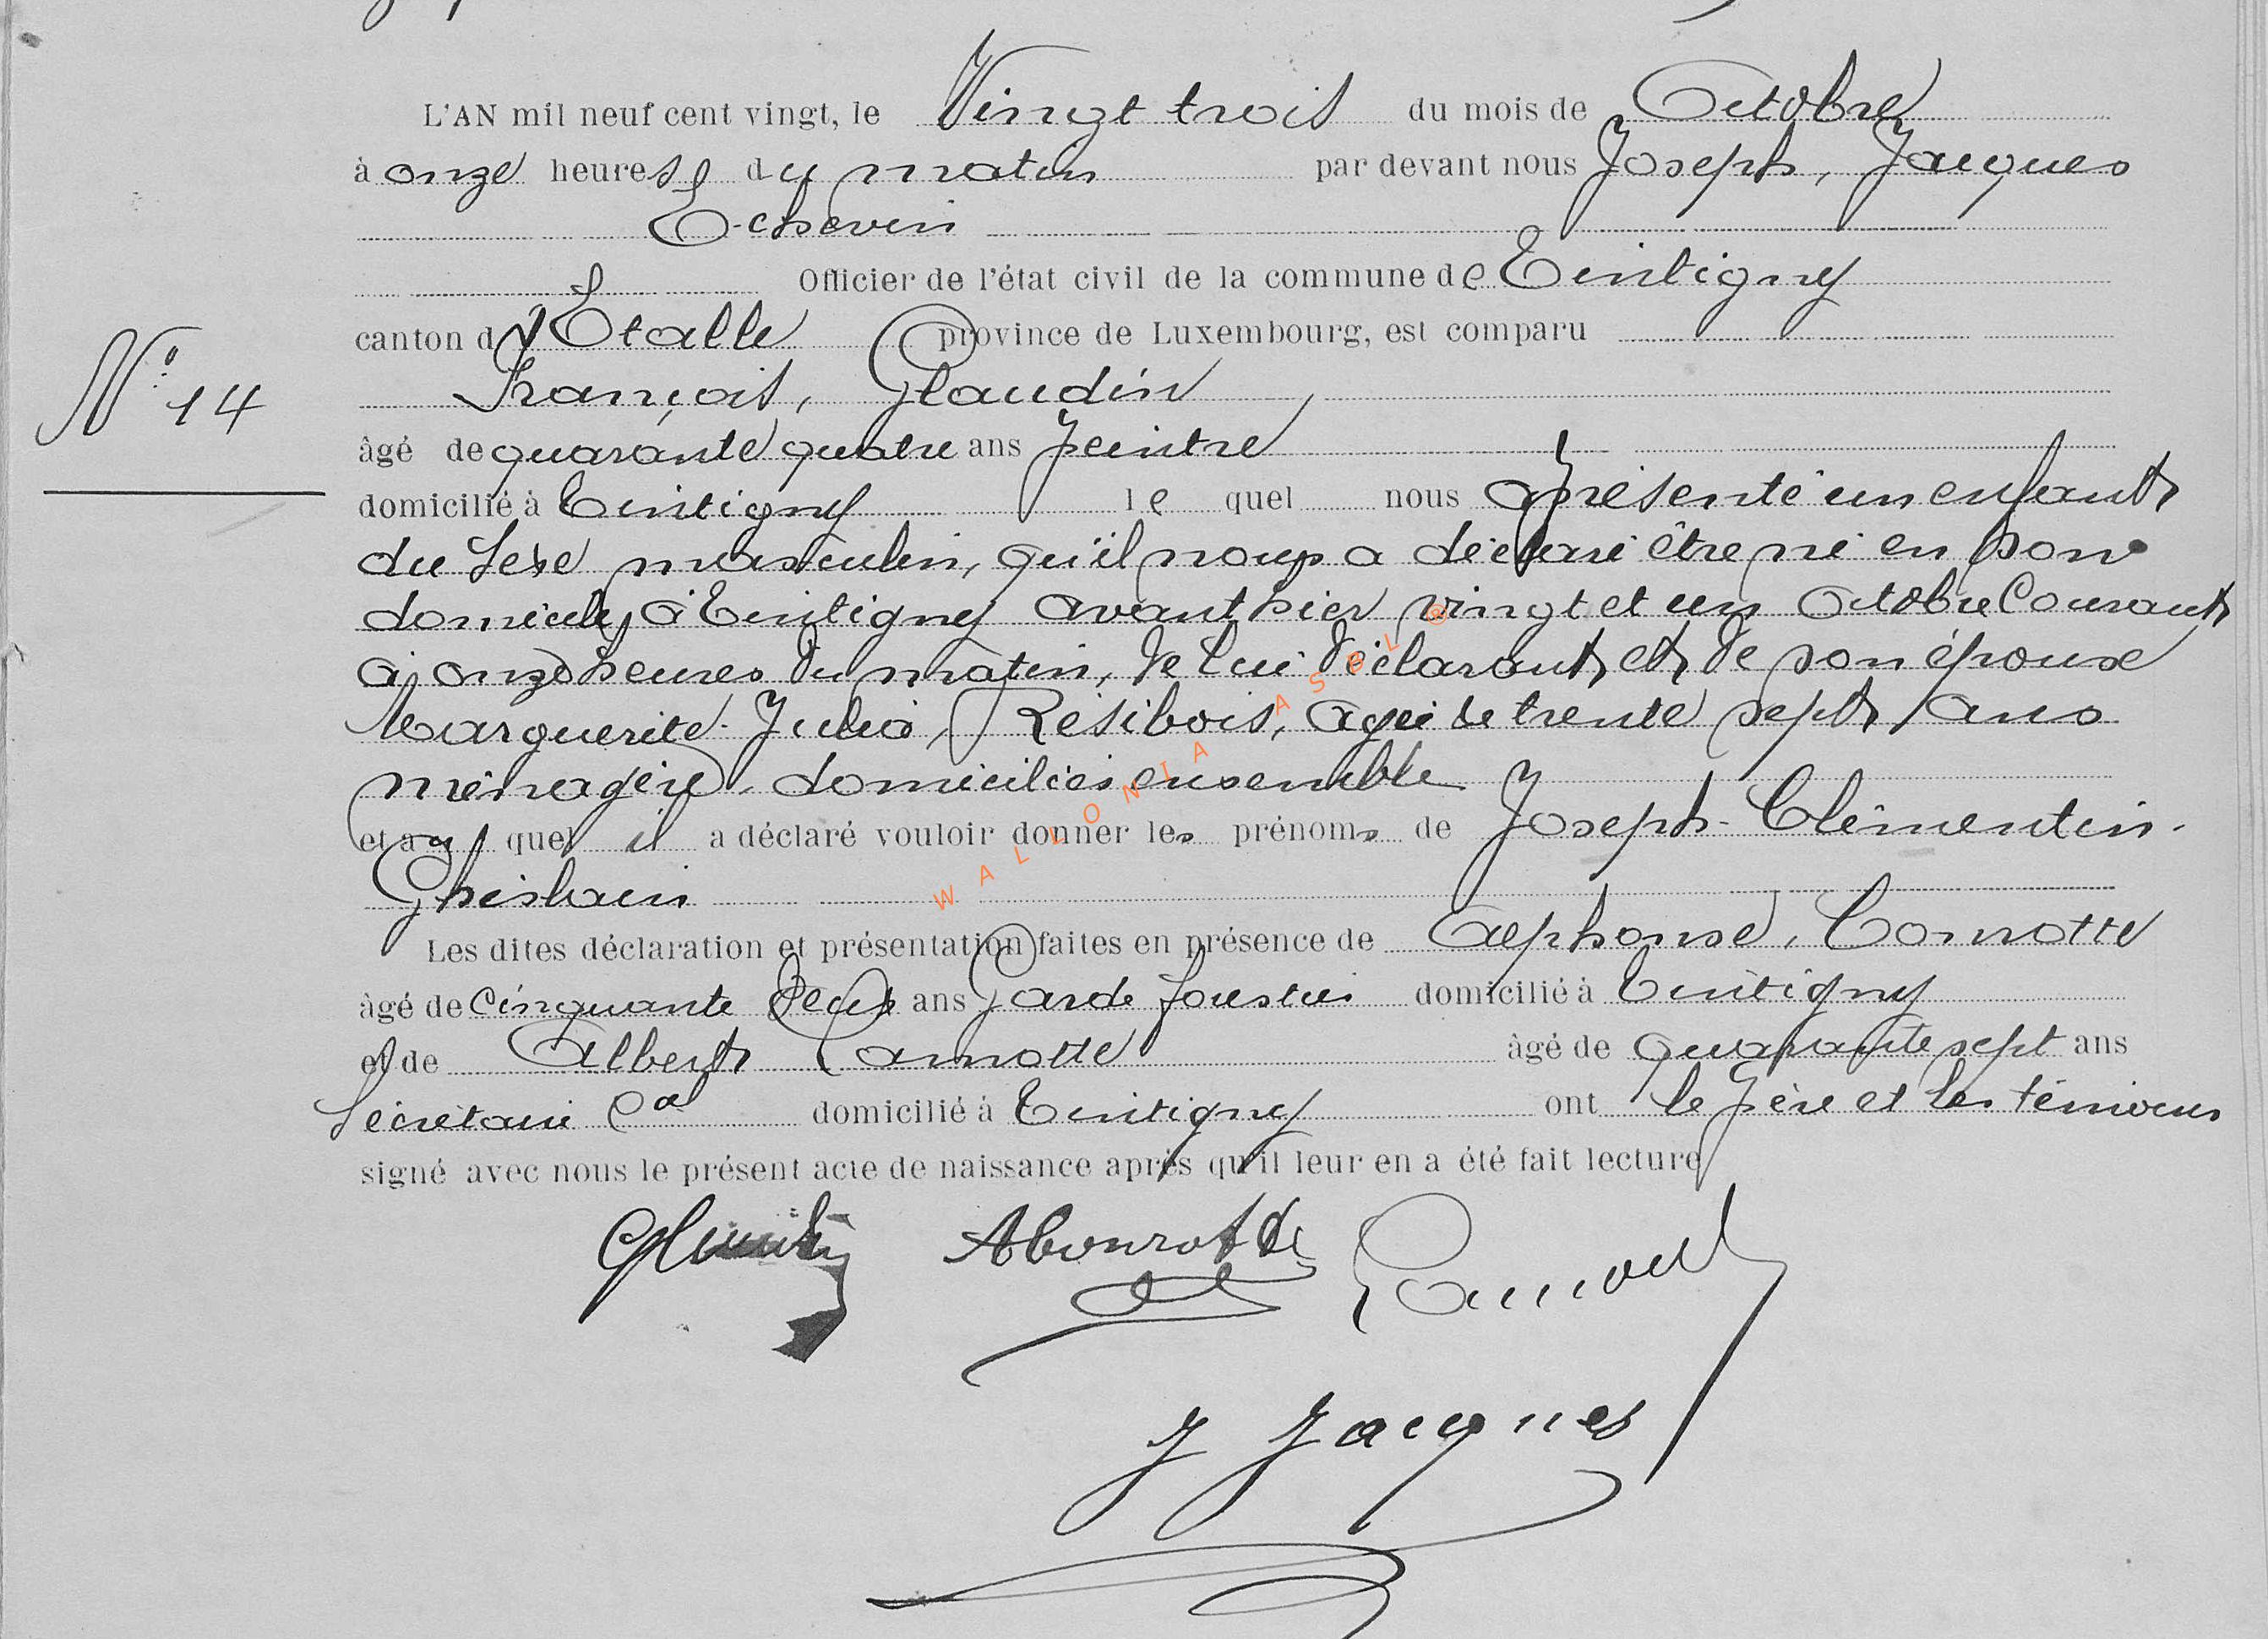 L'AN mil neuf cent vingt, le Vingt trois du mois de Octobre
à onze heures du matin par devant nous Joseph, Jacques
Echevin
Officier de l'état civil de la commune de Tintigny
canton d'Etalle province de Luxembourg, est comparu
François, Glaudin
N° 14
âgé de quarante quatre ans peintre
domicilié à Tintigny le quel nous a présenté un enfant
du sexe masculin, qu'il nous a déclaré être né en son
domicile à Tintigny avant hier vingt et un Octobre Courant
à onze heures du matin, de lui déclarant et de son épouse
Marguerite-Julia, Résibois, agée de trente sept ans
ménagère, domiciliés ensemble
et au quel il a déclaré vouloir donner les prénoms de Joseph-Clémentin-
Ghislain
Les dites déclaration et présentation faites en présence de Alphonse, Connotte
âgé de Cinquante deux ans Garde forestier domicilié à Tintigny
et de Albert Lannotte âgé de quarante sept ans
Secrétaire Cal domicilié à Tintigny ont le père et les témoins
signé avec nous le présent acte de naissance après qu'il leur en a été fait lecture
Glaudin AConrotte
J Jacques
WALLONIA ASBL ©